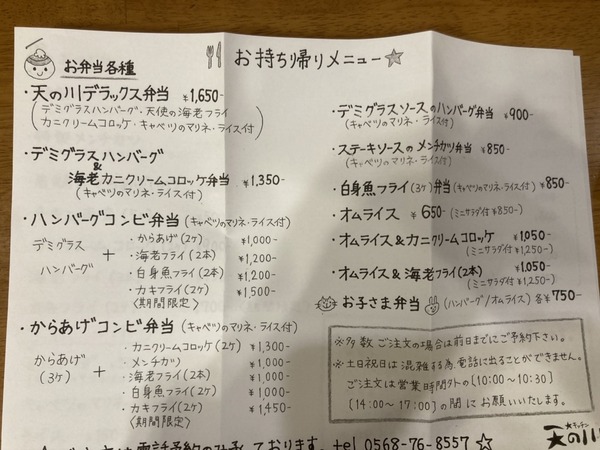 お持ち帰りメニュー☆
お弁当各種
・天の川デラックス弁当 ¥1,650-
(デミグラスハンバーグ・天使の海老フライ
カニクリームコロッケ・キャベツのマリネ・ライス付)
・デミグラスハンバーグ
&
海老カニクリームコロッケ弁当 ¥1,350-
(キャベツのマリネ・ライス付)
・ハンバーグコンビ弁当 (キャベツのマリネ・ライス付)
デミグラス
ハンバーグ
+
・からあげ(2ケ) ¥1,000-
・海老フライ(2本) ¥1,200-
・白身魚フライ(2本) ¥1,200-
・カキフライ(2ケ) ¥1,500-
〈期間限定〉
・からあげコンビ弁当 (キャベツのマリネ・ライス付)
からあげ
(3ケ)
+
・カニクリームコロッケ(2ケ) ¥1,300-
・メンチカツ ¥1,000-
・海老フライ(2本) ¥1,000-
・白身魚フライ(2ケ) ¥1,000-
・カキフライ(2ケ) ¥1,450-
〈期間限定〉
・デミグラスソースのハンバーグ弁当 ¥900-
(キャベツのマリネ・ライス付)
・ステーキソースのメンチカツ弁当 ¥850-
(キャベツのマリネ・ライス付)
・白身魚フライ(3ケ)弁当 (キャベツのマリネ・ライス付) ¥850-
・オムライス ¥650- (ミニサラダ付 ¥850-)
・オムライス&カニクリームコロッケ ¥1,050-
(ミニサラダ付 ¥1,250-)
・オムライス&海老フライ(2本) ¥1,050-
(ミニサラダ付 ¥1,250-)
お子さま弁当 (ハンバーグ/オムライス) 各¥750-
※多数ご注文の場合は前日までにご予約下さい。
※土日祝日は混雑する為、電話に出ることができません。
ご注文は営業時間外の(10:00〜10:30)
(14:00〜17:00)の間にお願いいたします。
電話予約のみ承っております。tel 0568-76-8557 ☆
キッチン
天の川